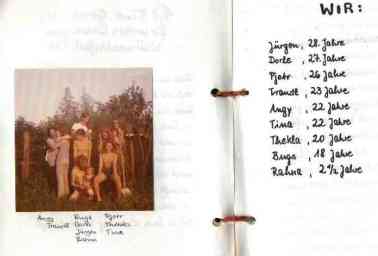 Angy Bugs Pjotr
Traudl Dorle Thekla
Jürgen Tina
Rahna
WIR:
Jürgen, 28 Jahre
Dorle, 27 Jahre
Pjotr, 26 Jahre
Traudl, 23 Jahre
Angy, 22 Jahre
Tina, 22 Jahre
Thekla, 20 Jahre
Bugs, 18 Jahre
Rahna, 2 ½ Jahre